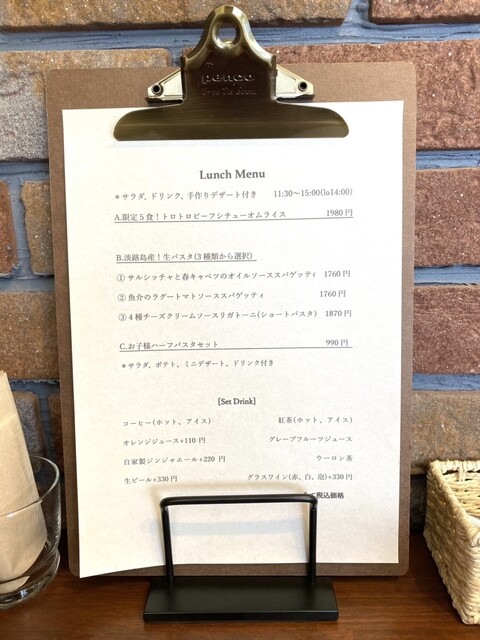 penco
Lunch Menu
＊サラダ、ドリンク、手作りデザート付き 11:30～15:00(lo14:00)
A.限定５食！トロトロビーフシチューオムライス 1980円
B.淡路島産！生パスタ(３種類から選択)
① サルシッチャと春キャベツのオイルソーススパゲッティ 1760円
② 魚介のラグートマトソーススパゲッティ 1760円
③ 4種チーズクリームソースリガトーニ(ショートパスタ) 1870円
C.お子様ハーフパスタセット 990円
＊サラダ、ポテト、ミニデザート、ドリンク付き
[Set Drink]
コーヒー(ホット、アイス) 紅茶(ホット、アイス)
オレンジジュース+110 円 グレープフルーツジュース
自家製ジンジャエール+220 円 ウーロン茶
生ビール+330円 グラスワイン(赤、白、泡)+330円
て税込価格